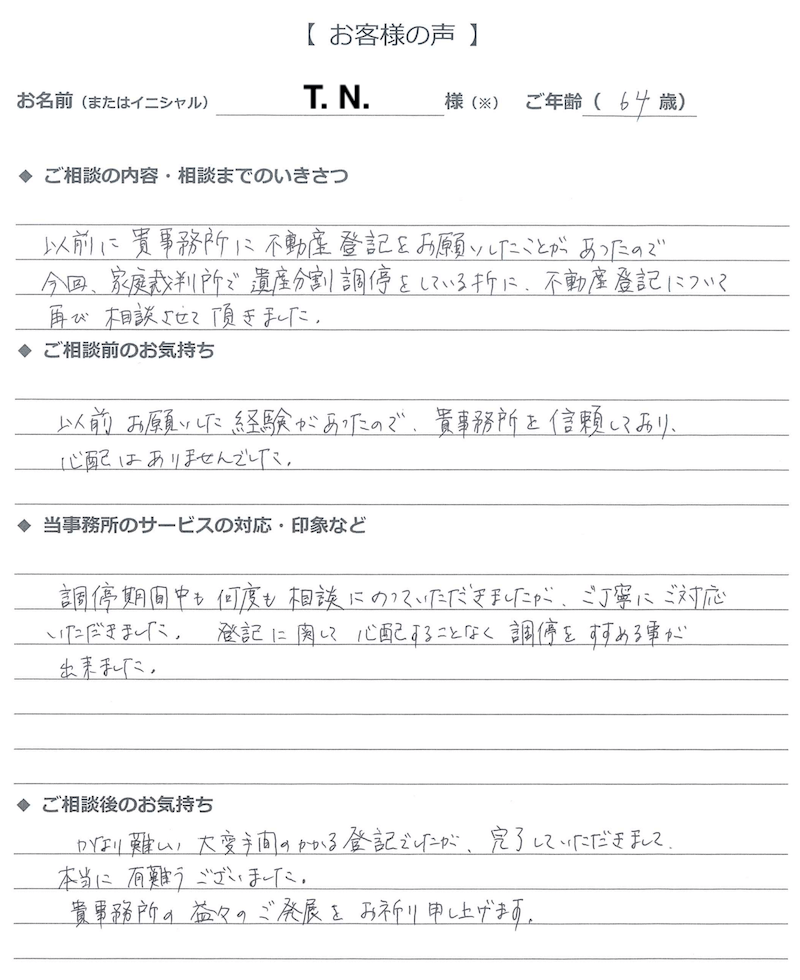 【 お客様の声 】
お名前（またはイニシャル） T. N. 様（※） ご年齢（ 64 歳）
◆ ご相談の内容・相談までのいきさつ
以前に 貴事務所に 不動産 登記を お願いしたことが あったので
今回、家庭裁判所で 遺産分割 調停をしている折に、不動産登記について
再び 相談させて 頂きました。
◆ ご相談前のお気持ち
以前 お願いした 経験があったので、貴事務所を 信頼しており、
心配は ありませんでした。
◆ 当事務所のサービスの対応・印象など
調停期間中も 何度も 相談 にのっていただきましたが、ご丁寧に ご対応
いただきました。 登記に 関して 心配することなく 調停を すすめる事が
出来ました。
◆ ご相談後のお気持ち
かなり難しい 大変手間のかかる 登記でしたが、完了していただきまして、
本当に 有難う ございました。
貴事務所の 益々の ご発展を お祈り申し上げます。